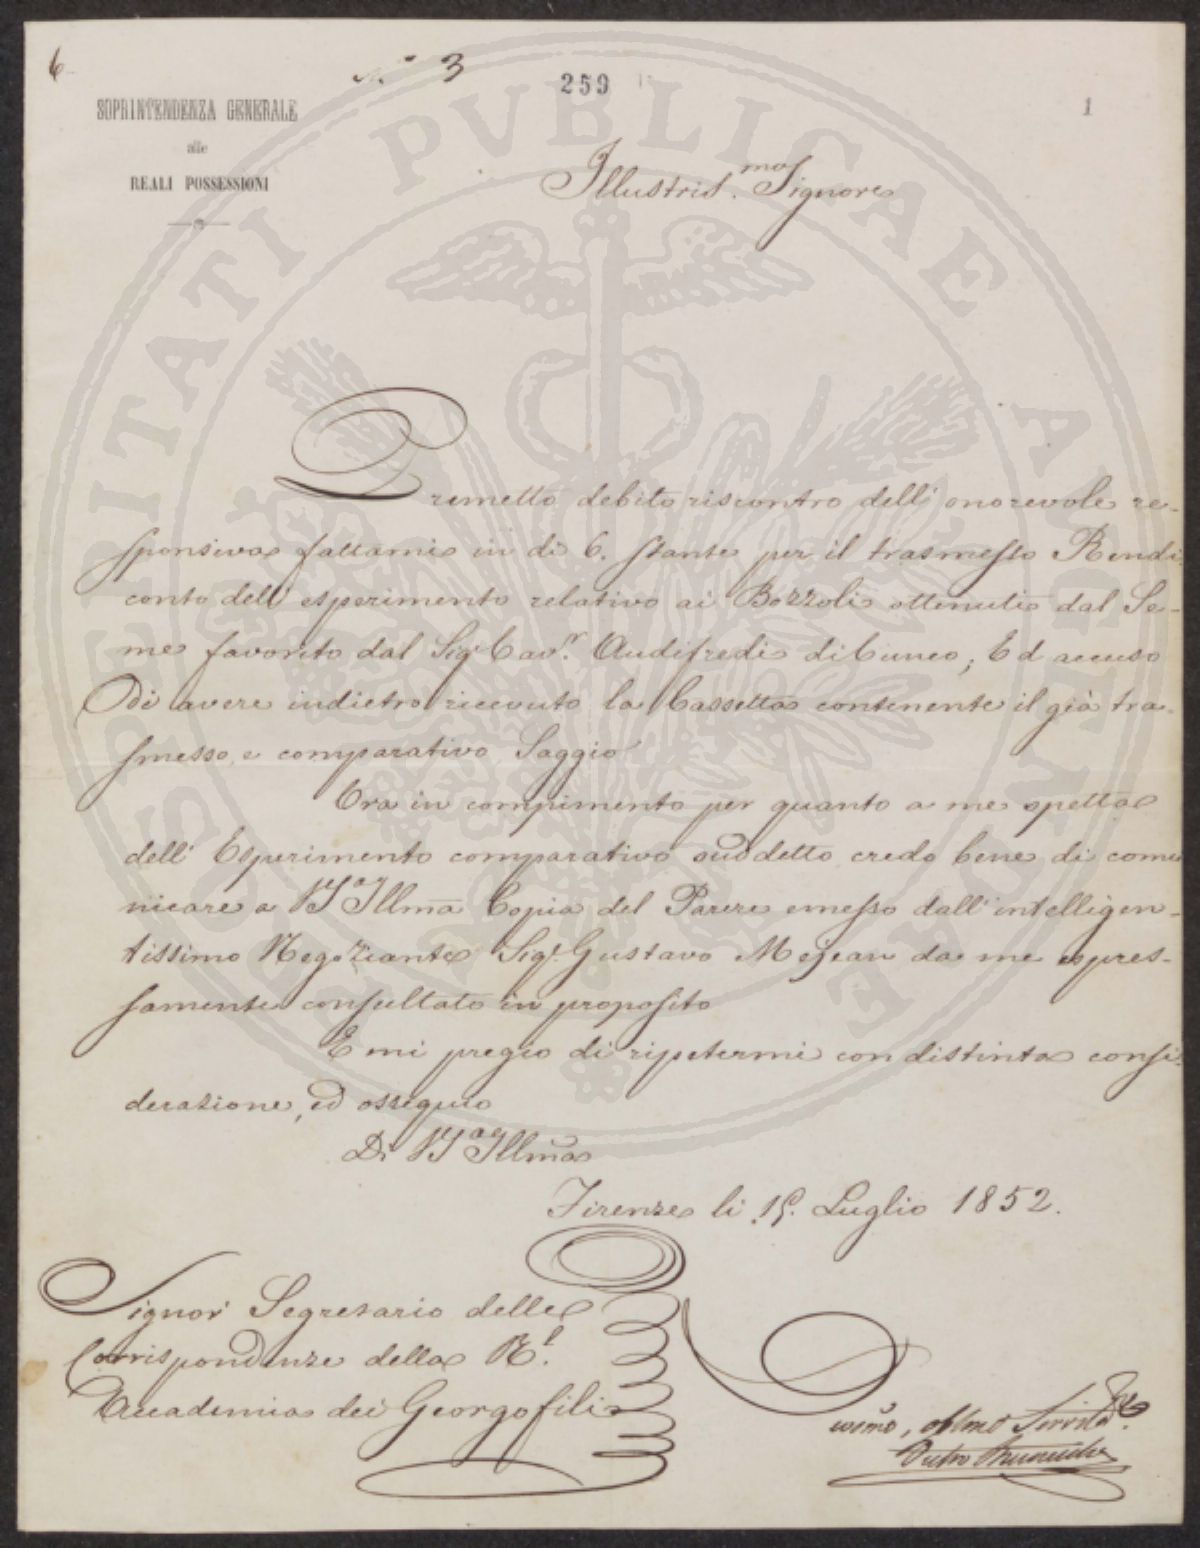 6
N.° 3
259
1
SOPRINTENDENZA GENERALE
alle
REALI POSSESSIONI
Illustris.mo Signore
Premetto debito riscontro dell' onorevole re-
sponsiva fattami in di 6. stante per il trasmesso Rendi
conto dell' esperimento relativo ai Bozzoli ottenuti dal Se-
me favorito dal Sig.r Cav.r Audifredi di Cuneo; Ed accuso
Di avere indietro ricevuto la Cassetta contenente il già tra-
smesso, e comparativo Saggio
Ora in compimento per quanto a me spetta
dell' Esperimento comparativo suddetto credo bene di comu
nicare a VS.a Illma Copia del Parere emesso dall' intelligen-
tissimo Negoziante Sig.r Gustavo Mejean da me espres-
samente consultato in proposito
E mi pregio di ripetermi con distinta consi
derazione, ed ossequio
Di VS.a Illma
Firenze li 15. Luglio 1852.
Signor Segretario delle
Corrispondenze della R.l
Accademia dei Georgofili
Devmo, obbmo Servitore
Pietro
PROSPERITATI PVBLICAE AVGENDAE